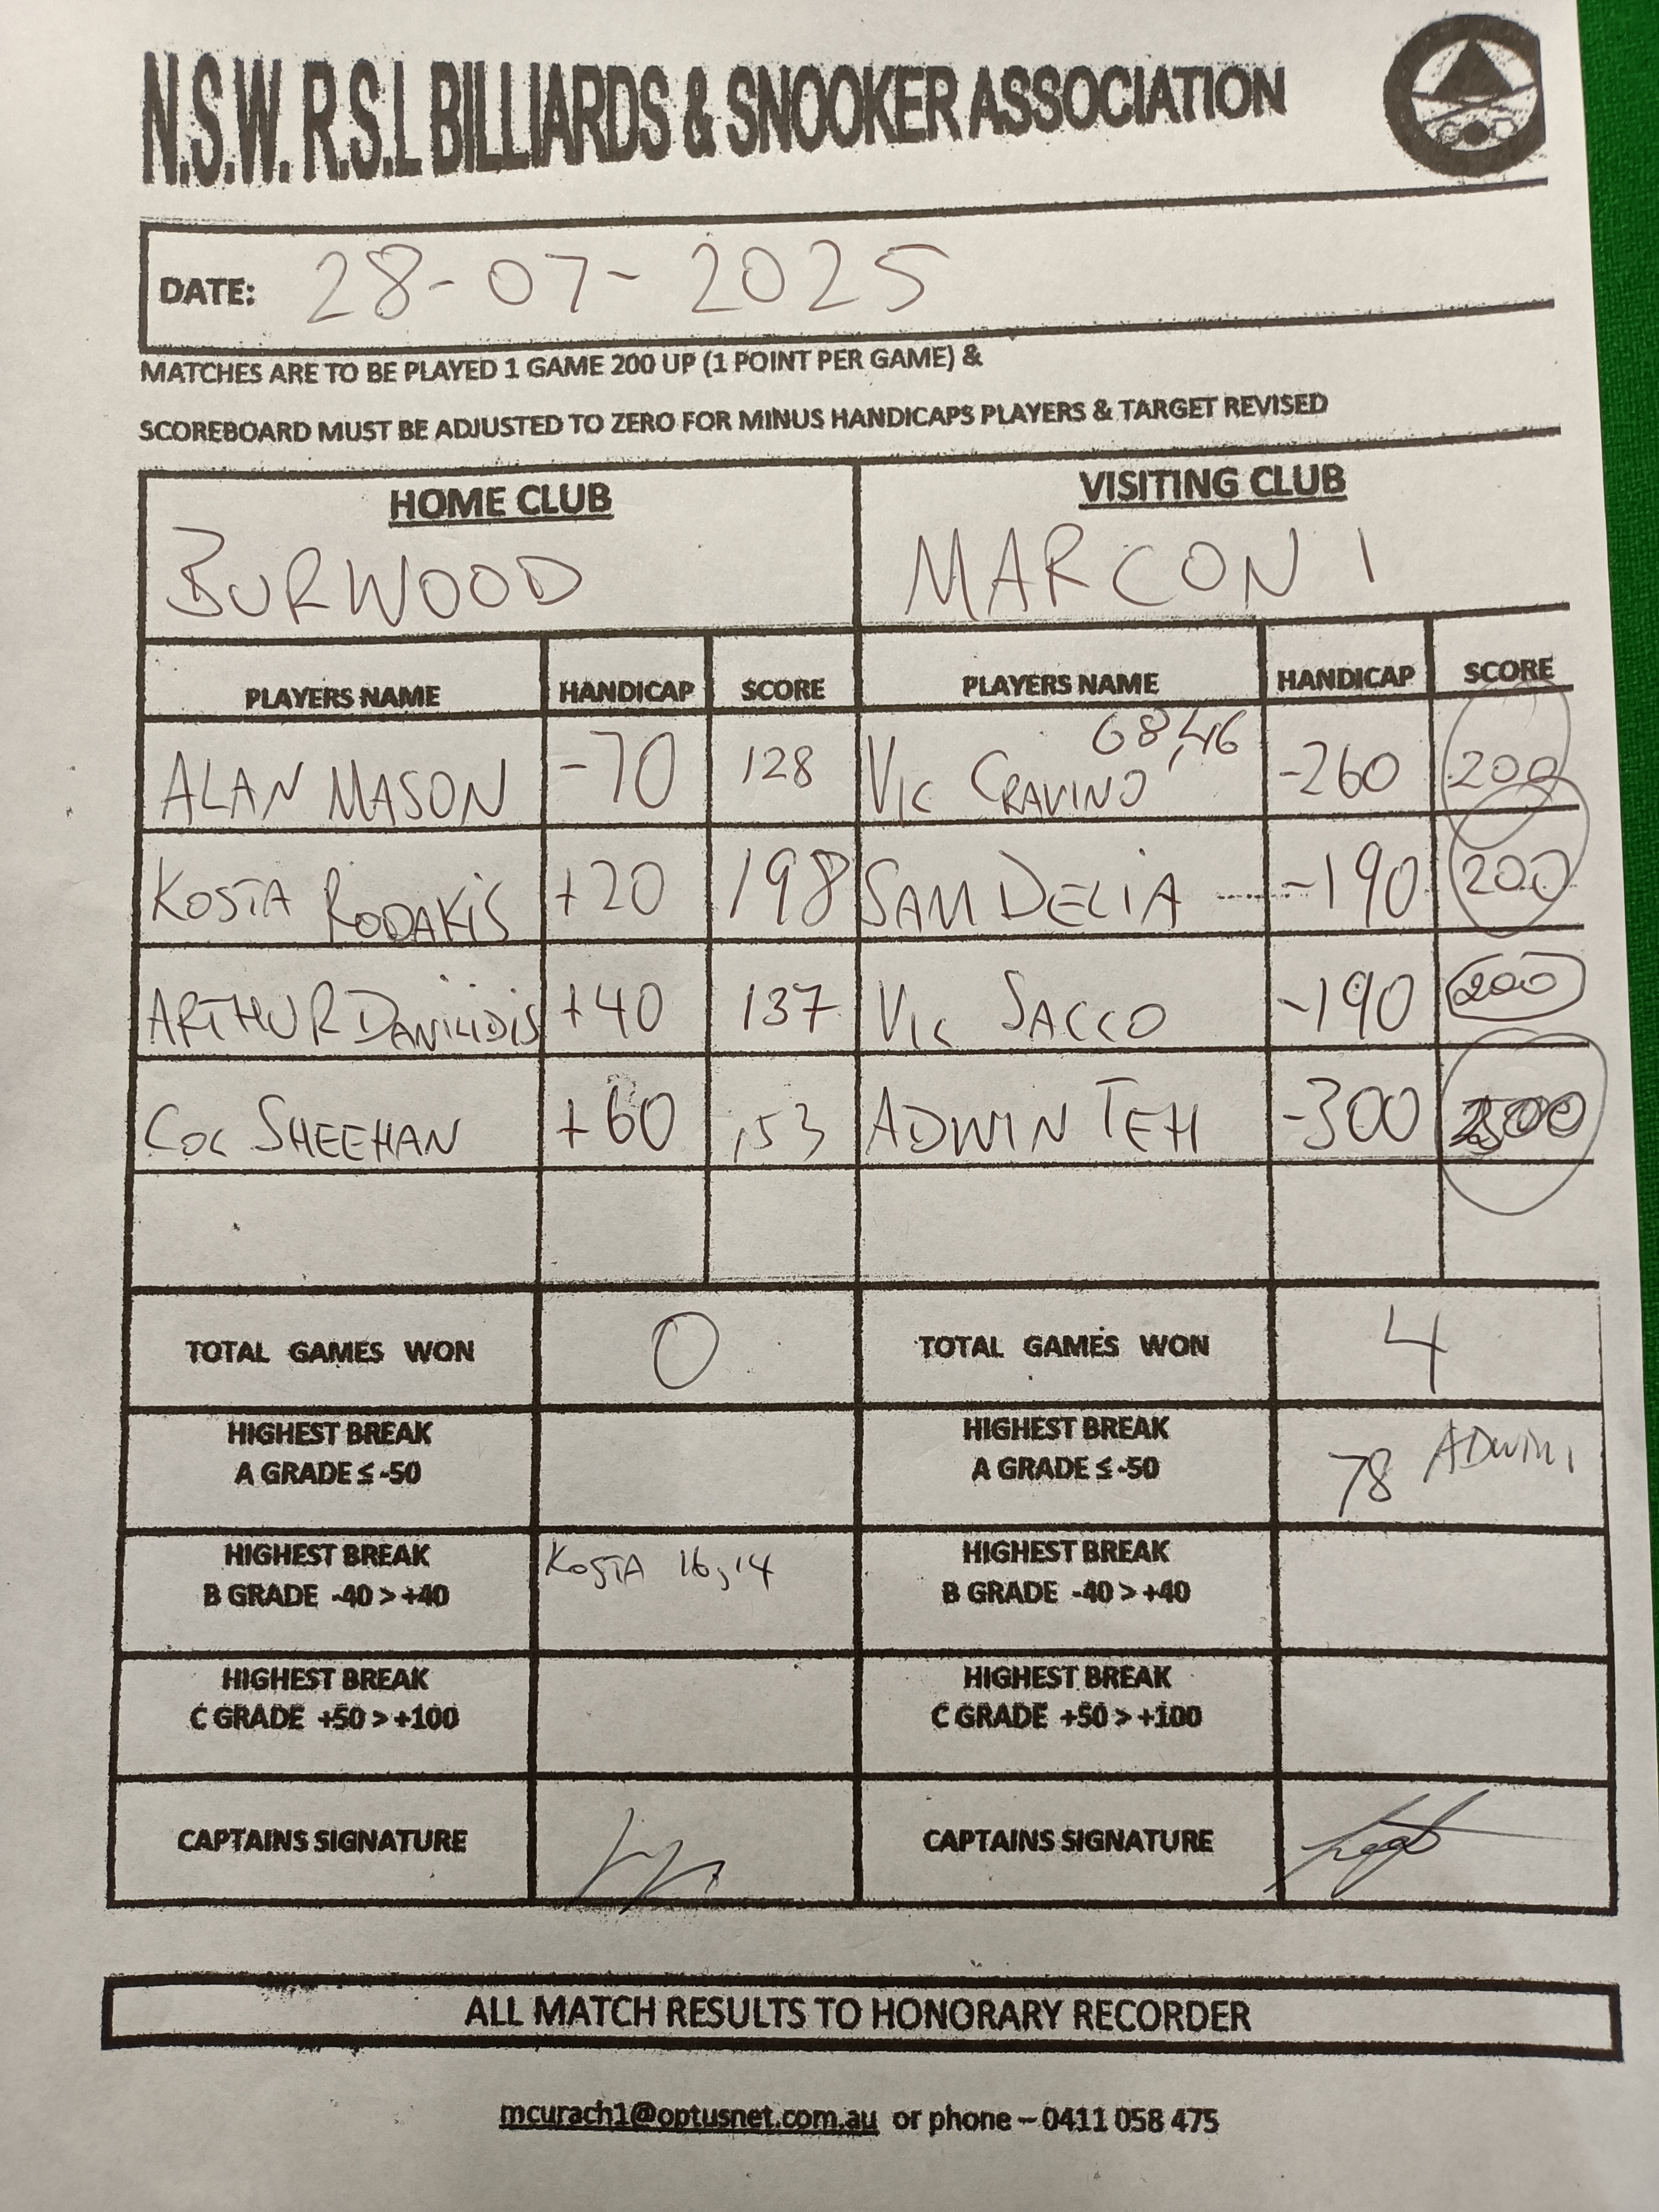 N.S.W. R.S.L BILLIARDS & SNOOKER ASSOCIATION
DATE: 28-07-2025
MATCHES ARE TO BE PLAYED 1 GAME 200 UP (1 POINT PER GAME) &
SCOREBOARD MUST BE ADJUSTED TO ZERO FOR MINUS HANDICAPS PLAYERS & TARGET REVISED
HOME CLUB VISITING CLUB
BURWOOD MARCONI
PLAYERS NAME HANDICAP SCORE PLAYERS NAME HANDICAP SCORE
68,46
ALAN MASON -70 128 VIC CRAVINO -260 200
KOSTA RODAKIS +20 198 SAM DELIA -190 200
ARTHUR DANILIDIS +40 137 VIC SACCO -190 200
COL SHEEHAN +60 153 ADWIN TEH -300
TOTAL GAMES WON 0 TOTAL GAMES WON 4
HIGHEST BREAK HIGHEST BREAK
A GRADE ≤ -50 A GRADE ≤ -50 78 ADWIN
HIGHEST BREAK KOSTA 16,14 HIGHEST BREAK
B GRADE -40 > +40 B GRADE -40 > +40
HIGHEST BREAK HIGHEST BREAK
C GRADE +50 > +100 C GRADE +50 > +100
CAPTAINS SIGNATURE CAPTAINS SIGNATURE
ALL MATCH RESULTS TO HONORARY RECORDER
mcurach1@optusnet.com.au or phone – 0411 058 475